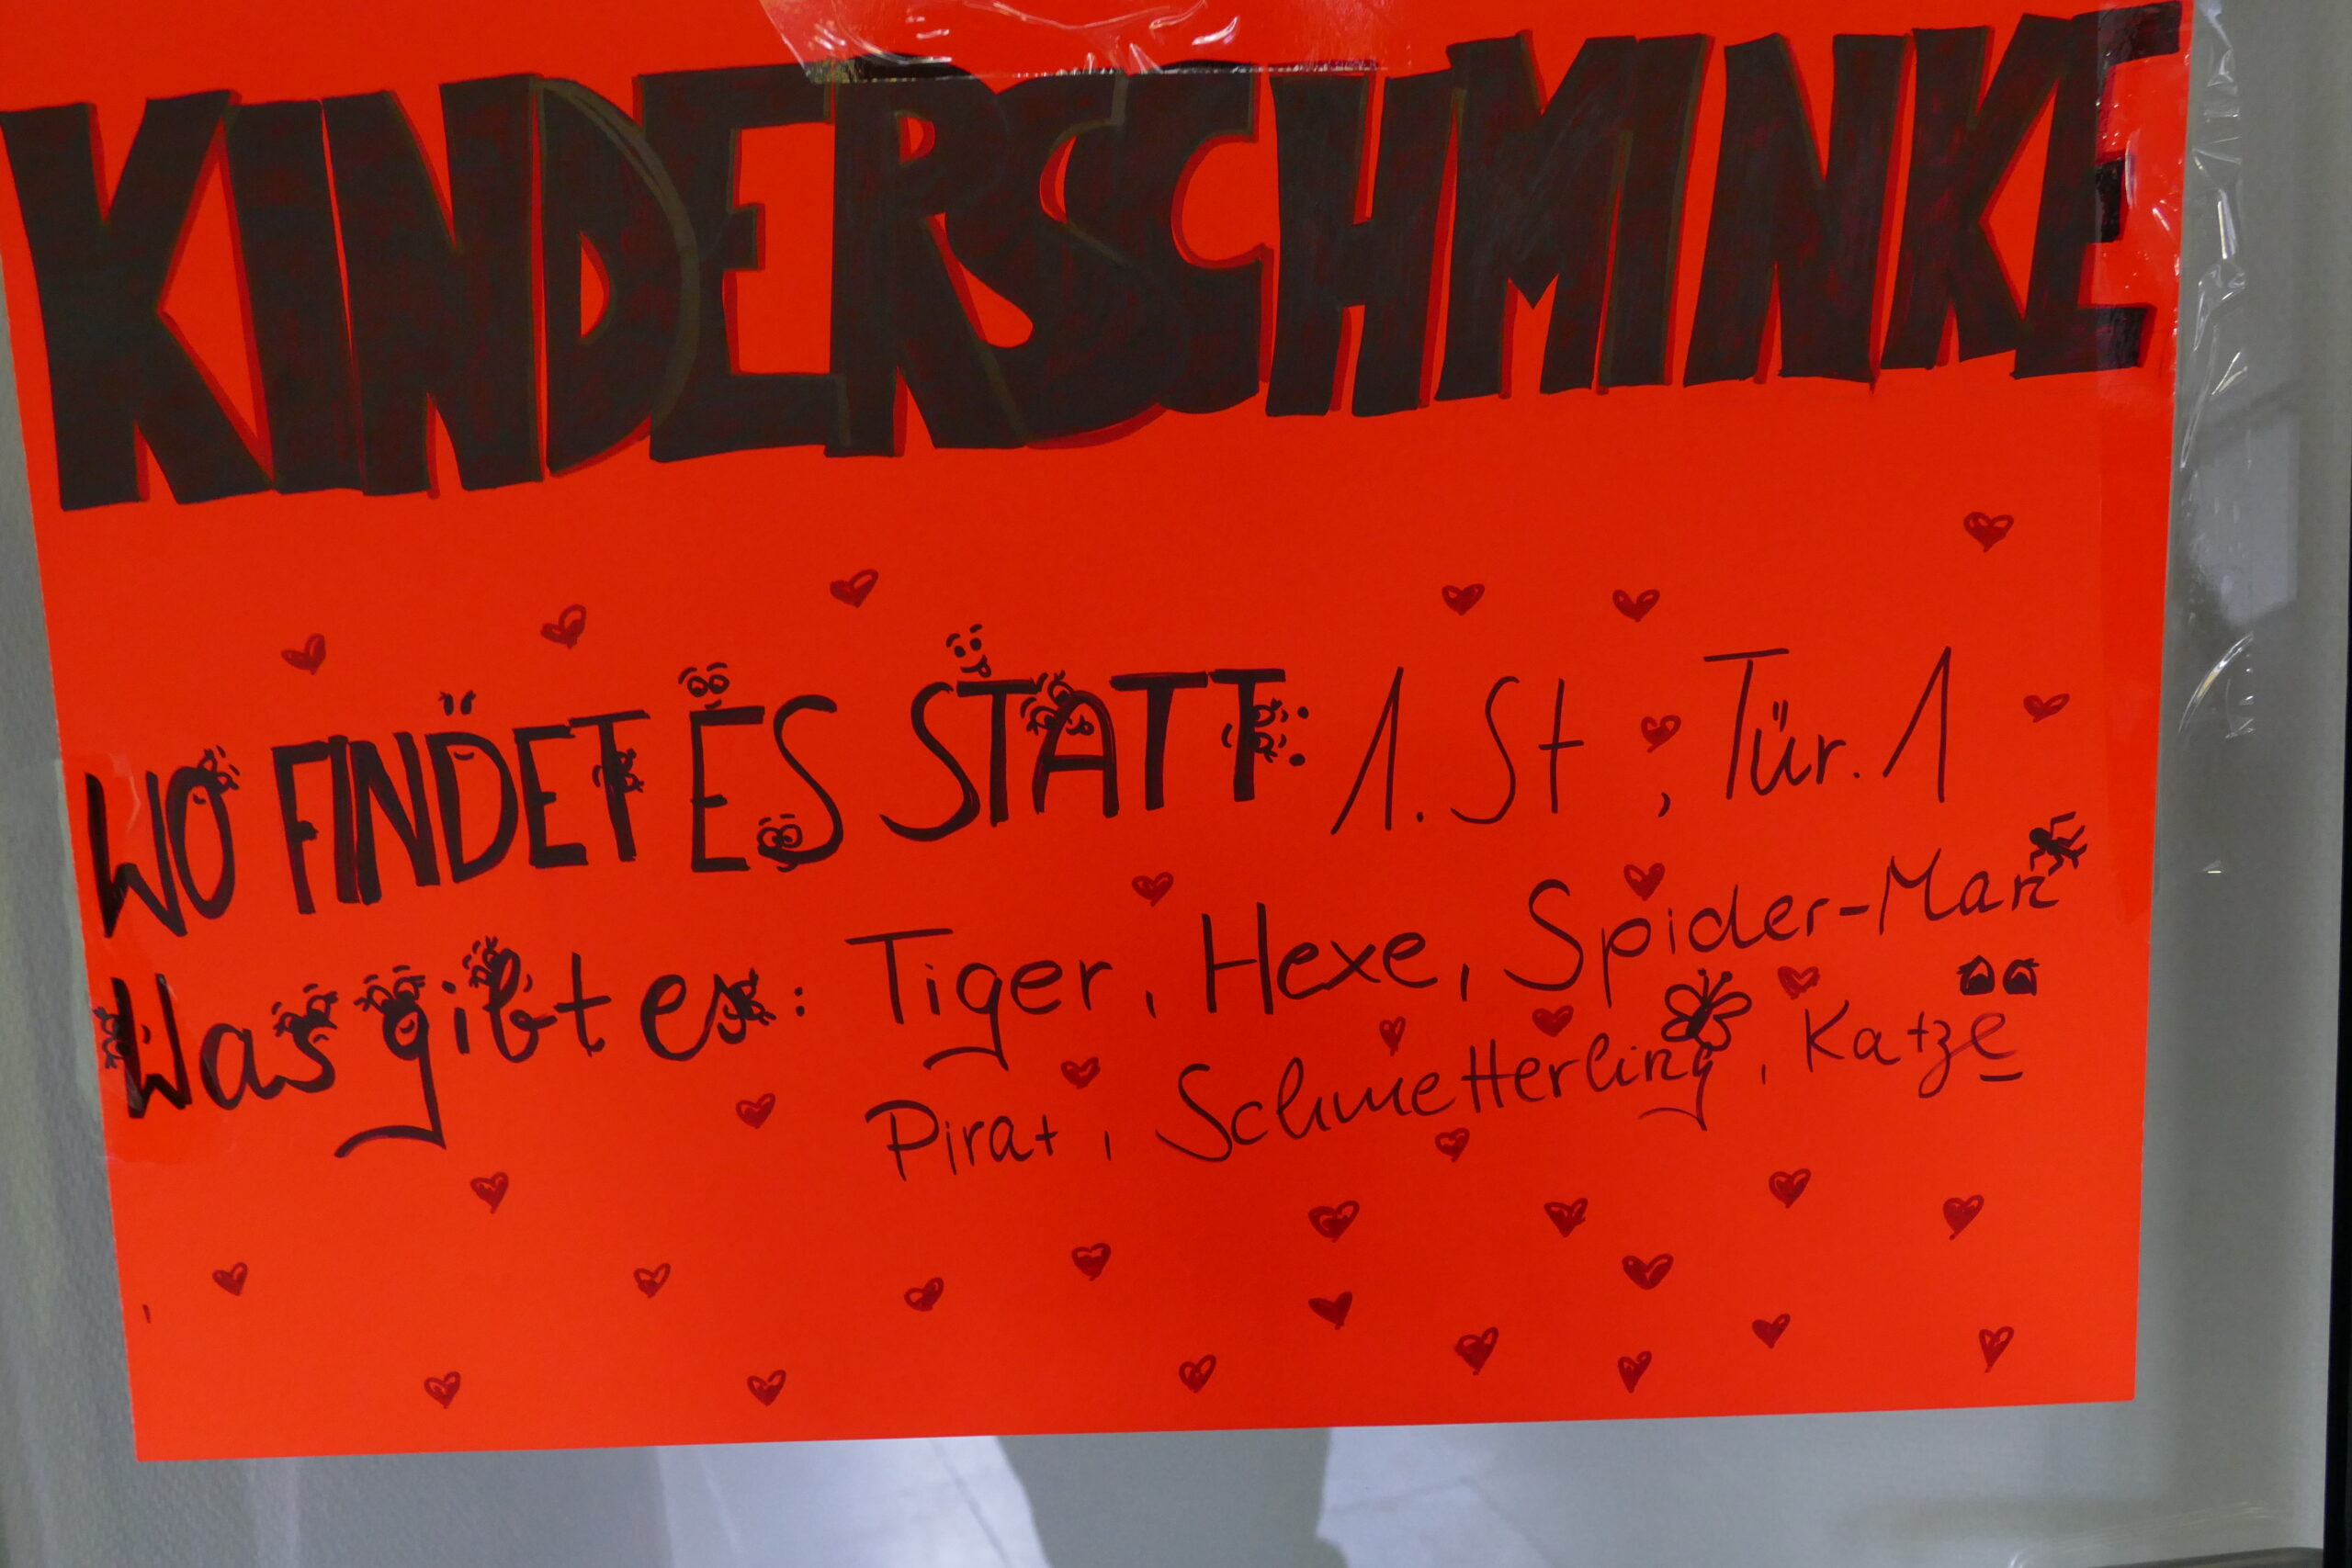 KINDERSCHMINKE
WO FINDET ES STATT: 1. St, Tür. 1
Was gibt es: Tiger, Hexe, Spider-Man
Pirat, Schmetterling, Katze